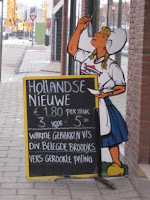 HOLLANDSE
NIEUWE
€ 1,80 PER STUK
3 VOOR 5,00
WARME GEBAKKEN VIS
DIV. BELEGDE BROODJES
VERS GEROOKTE PALING